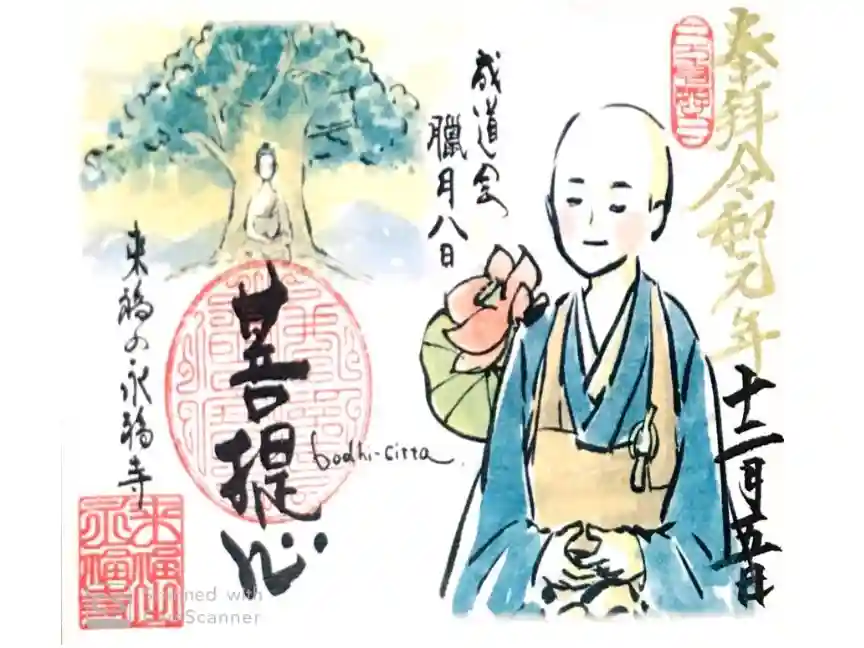 奉拝令和元年
十二月五日
成道会
臘月八日
菩提心
bodhi-citta.
来福の永福寺
来福山
永福寺
Scanned with
Scanner